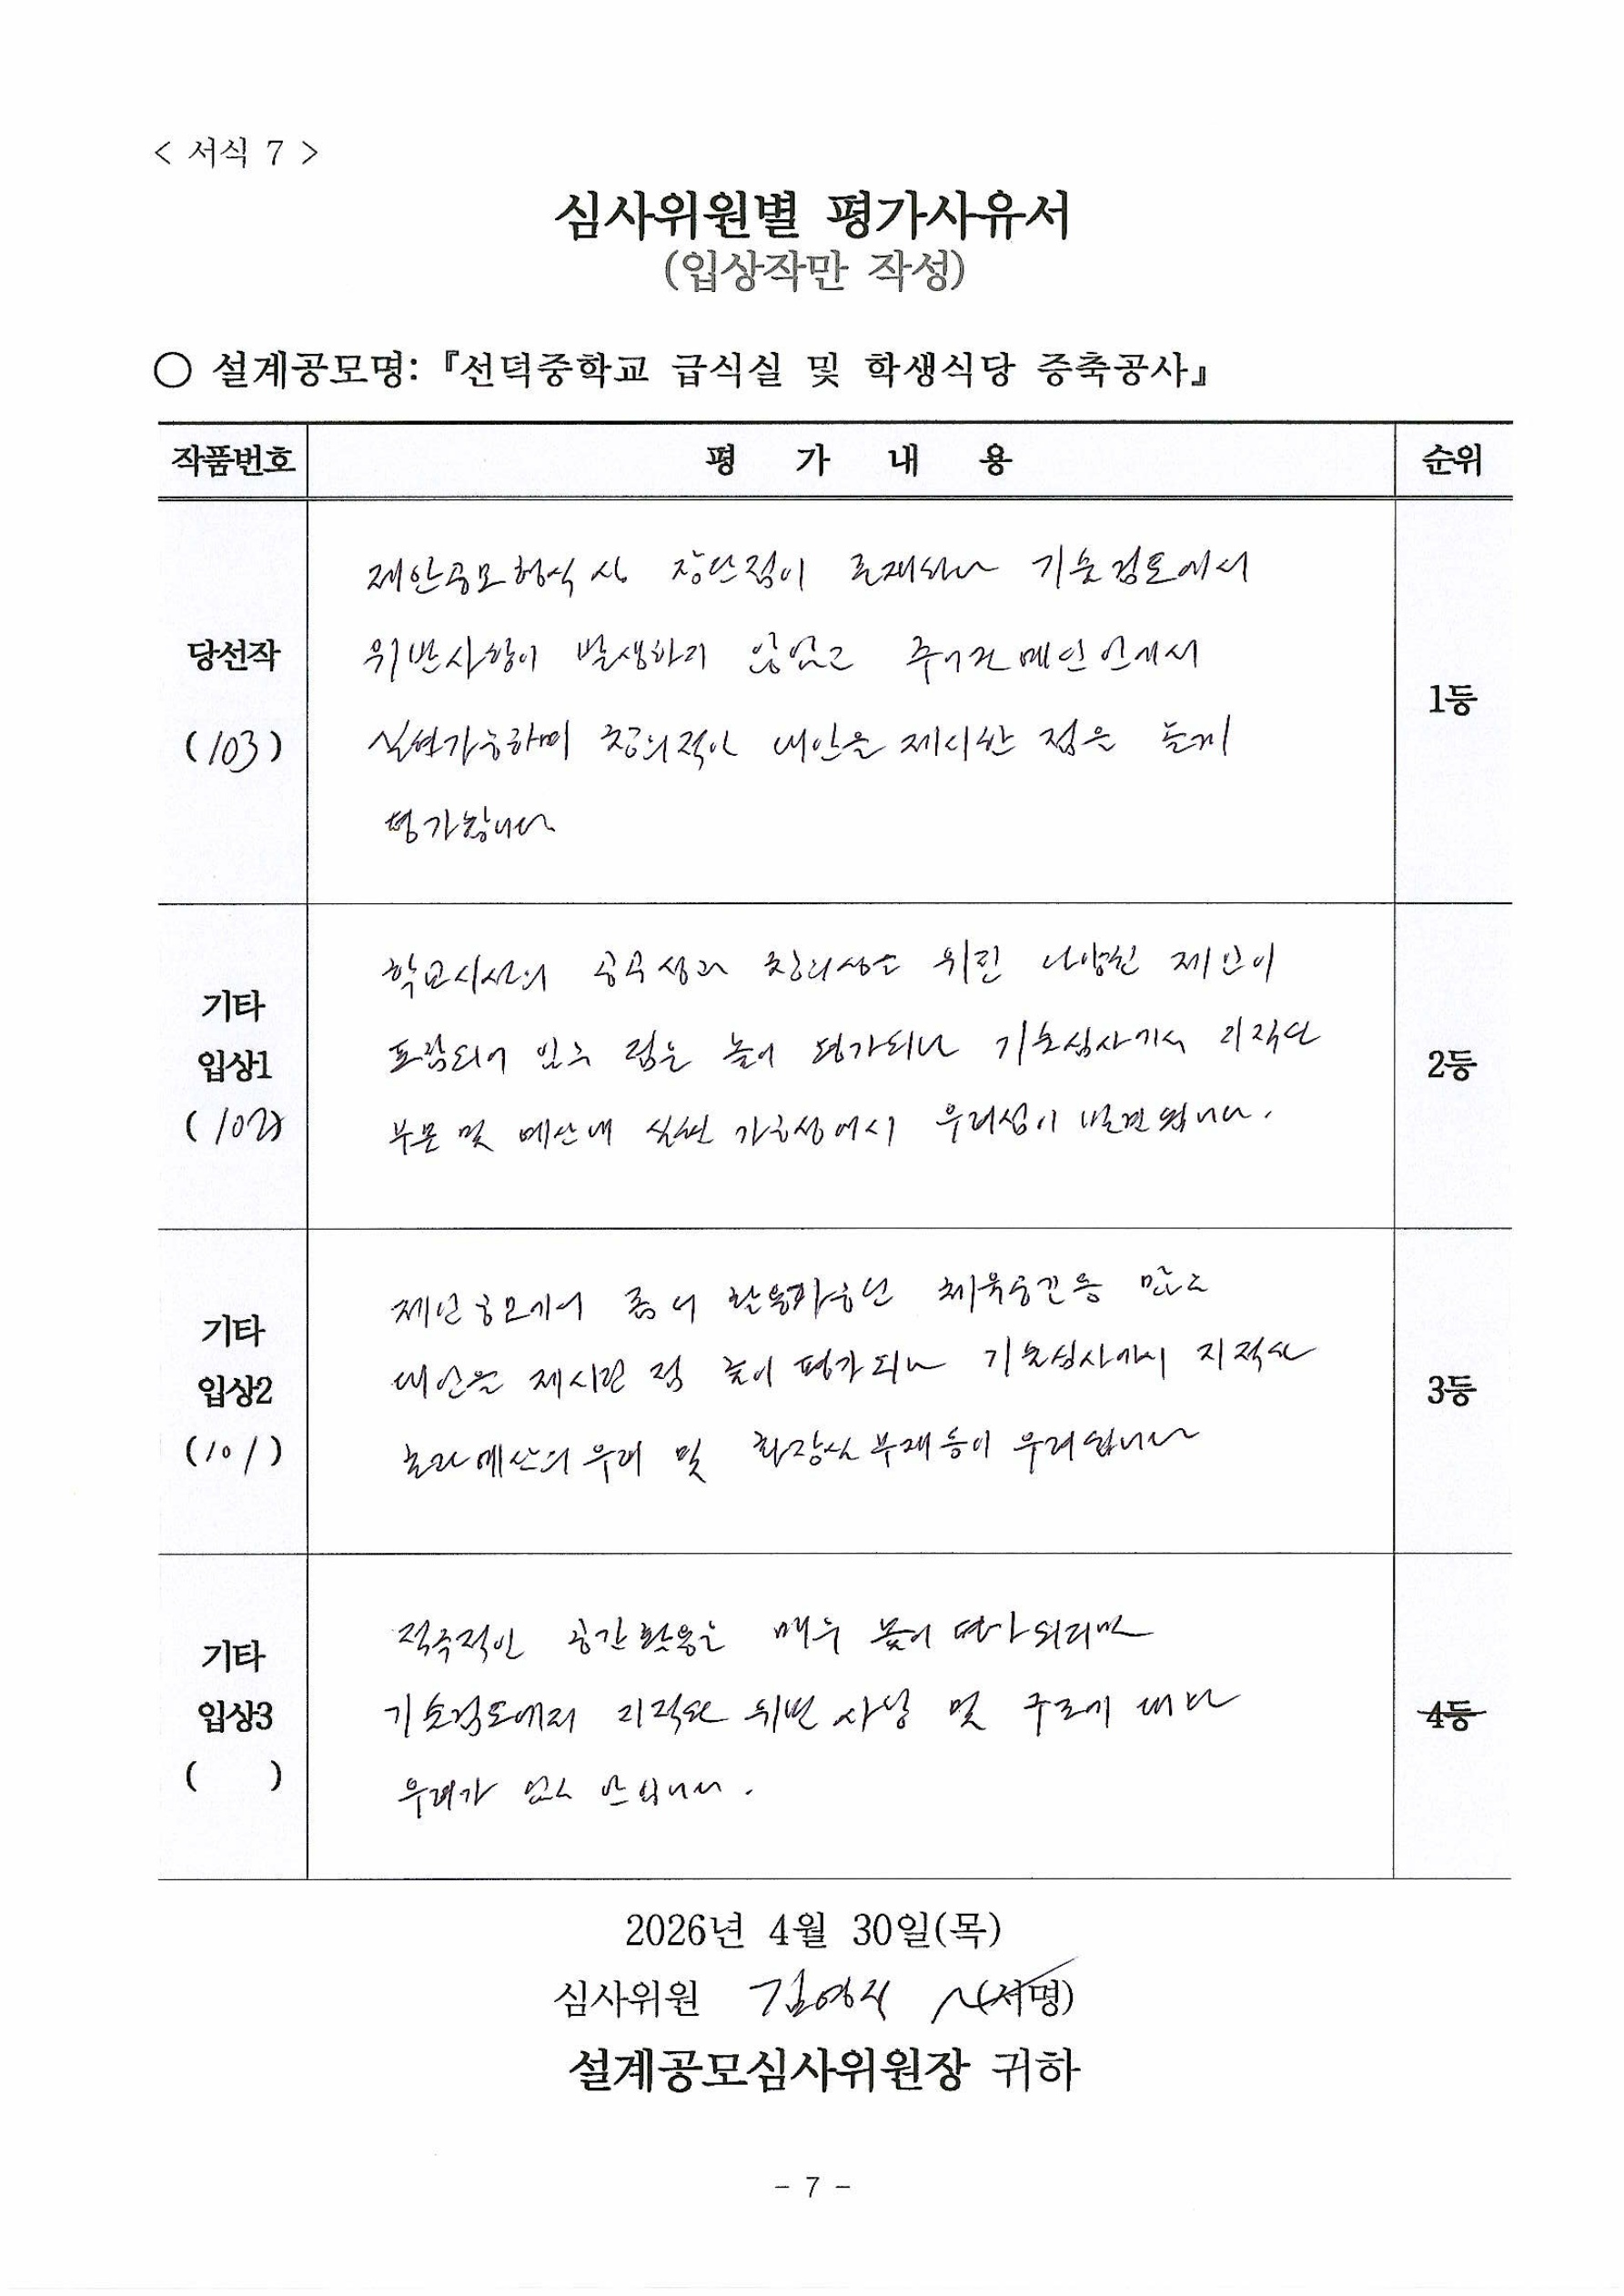 < 서식 7 >
심사위원별 평가사유서
(입상작만 작성)
○ 설계공모명:『선덕중학교 급식실 및 학생식당 증축공사』
작품번호 평 가 내 용 순위
제안공모형식 상 장단점이 존재하나 기술검토에서
당선작 위반사항이 발생하지 않았고 주어진 예산 안에서
1등
(103) 실현가능하며 창의적인 대안을 제시한 점을 높게
평가합니다
학교시설의 공공성과 창의성을 위한 다양한 제안이
기타
입상1 포함되어 있는 점은 높이 평가되나 기술심사에서 지적한
2등
(102) 부분 및 예산내 실현 가능성에서 우려점이 발견됩니다.
제안공모에서 좀 더 활용가능한 체육공간을 만드는
기타
입상2 대안을 제시한 점 높이 평가되나 기술심사에서 지적한
3등
(101) 초과예산의 우려 및 화장실 부재 등이 우려됩니다
적극적인 공간활용은 매우 높이 평가되지만
기타
입상3 기술검토에서 지적한 위반 사항 및 구조에 대한
4등
( ) 우려가
2026년 4월 30일(목)
심사위원 김영식 (서명)
설계공모심사위원장 귀하
- 7 -